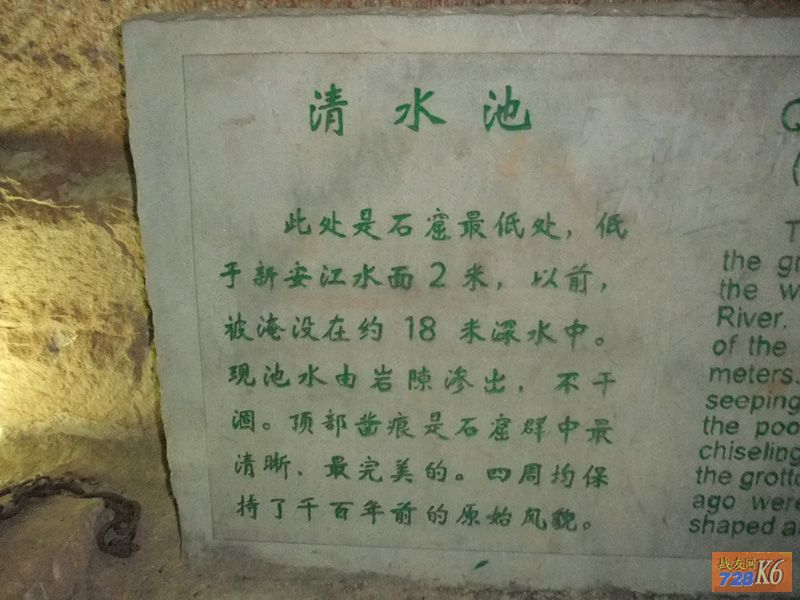 清水池
此处是石窟最低处，低
于新安江水面2米，以前，
被淹没在约18米深水中。
现池水由岩隙渗出，不干
涸。顶部凿痕是石窟群中最
清晰、最完美的。四周均保
持了千百年前的原始风貌。
Q
(
T
the gr
the w
River.
of the
meters.
seeping
the poo
chiseling
the grotto
ago were
shaped a
战友网
728K6